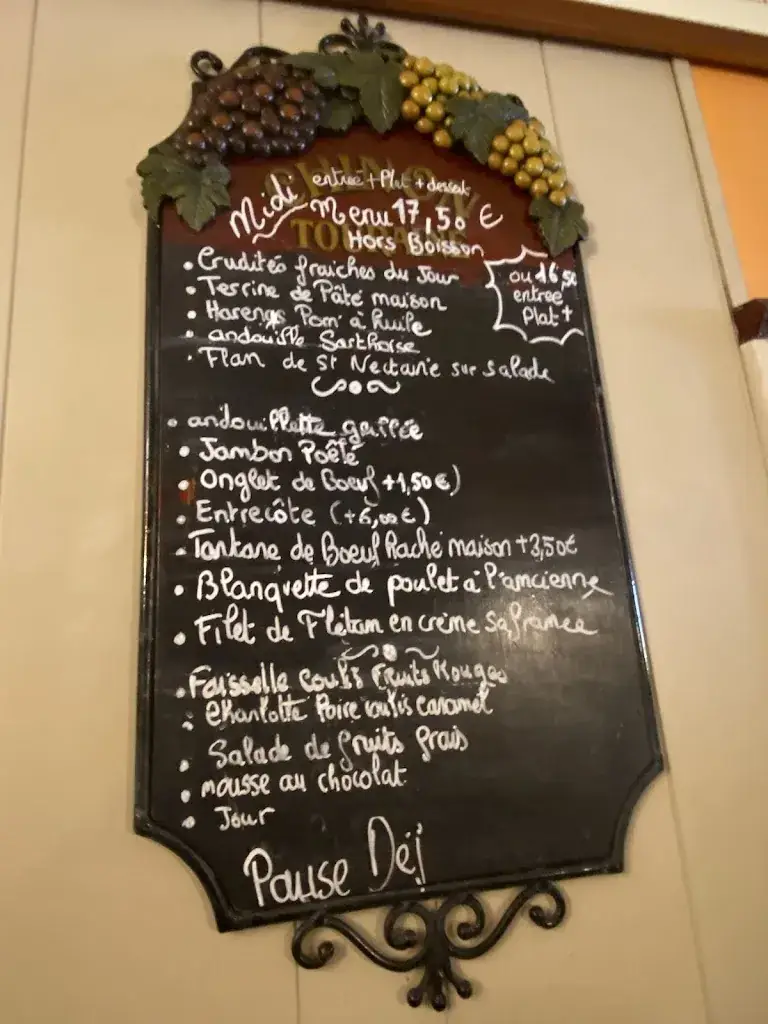 Midi entreé + Plat + dessert
Menu 17,50 €
Hors Boisson
• Crudités fraiches du Jour
• Terrine de Pâté maison
• Harengs Pom' à huile
• andouille Sarthoise
• Flan de St Nectaire sur salade
ou 16,50
entree
Plat +
• andouillette grillée
• Jambon Poêlé
• Onglet de Boeuf +1,50€)
• Entrecôte (+6,00€)
• Tartare de Boeuf Haché maison +3,50€
• Blanquette de poulet à l'ancienne
• Filet de Flétan en crème Safranée
• Faisselle coulis Fruits Rouges
• Charlotte Poire coulis caramel
• Salade de fruits frais
• mousse au chocolat
• Jour
Pause Déj